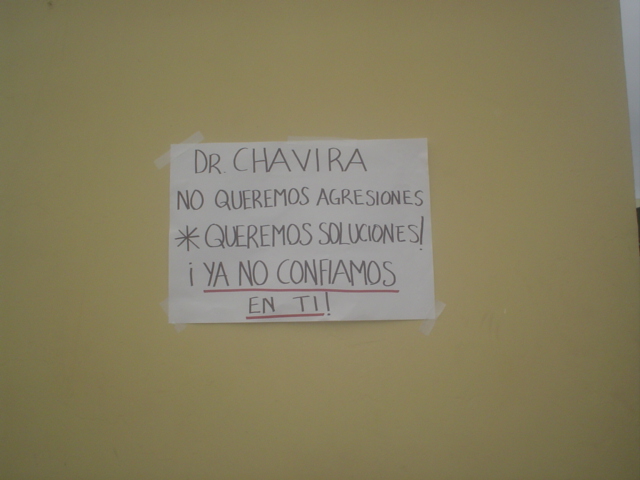 DR. CHAVIRA
NO QUEREMOS AGRESIONES
* QUEREMOS SOLUCIONES!
¡ YA NO CONFIAMOS
EN TI!